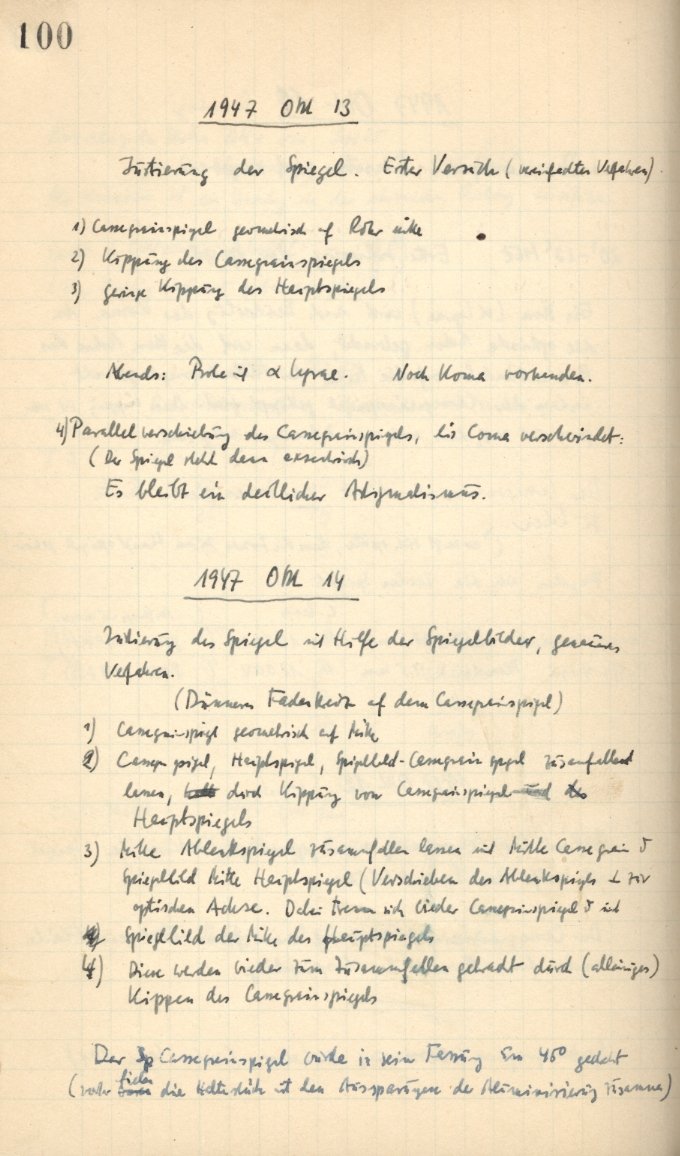 100
1947 Okt 13
Justierung der Spiegel. Erster Versuch (vereinfachtes Verfahren).
1) Cassegrainspiegel geometrisch auf Rohr mitte
2) Kippung des Cassegrainspiegels
3) geringe Kippung des Hauptspiegels
Abends: Probe mit α Lyrae. Noch Koma vorhanden.
4) Parallelverschiebung des Cassegrainspiegels, bis Coma verschwindet:
(Der Spiegel steht dann exzentrisch)
Es bleibt ein deutlicher Astigmatismus.
1947 Okt 14
Justierung des Spiegel mit Hilfe der Spiegelbilder, genaueres
Verfahren.
(Dünneres Fadenkreuz auf dem Cassegrainspiegel)
1) Cassegrainspiegel geometrisch auf Mitte
2) Cassegr spiegel, Hauptspiegel, Spiegelbild-Cassegrain spiegel zusammenfallen
lassen, durch Kippung von Cassegrainspiegel und des
Hauptspiegels
3) Mitte Ablenkspiegel zusammenfallen lassen mit Mitte Cassegrain u
Spiegelbild Mitte Hauptspiegel (Verschieben des Ablenkspiegels ⊥ zur
optischen Achse. Dabei trennen sich wieder Cassegrainspiegel u mit
Spiegelbild der Mitte des Hauptspiegels
4) Diese werden wieder zum Zusammenfallen gebracht durch (alleiniges)
Kippen des Cassegrainspiegels
Der Cassegrainspiegel wurde in seiner Fassung um 45° gedreht
( die Haltestücke mit den Aussparungen der Aluminisierung zusammen)